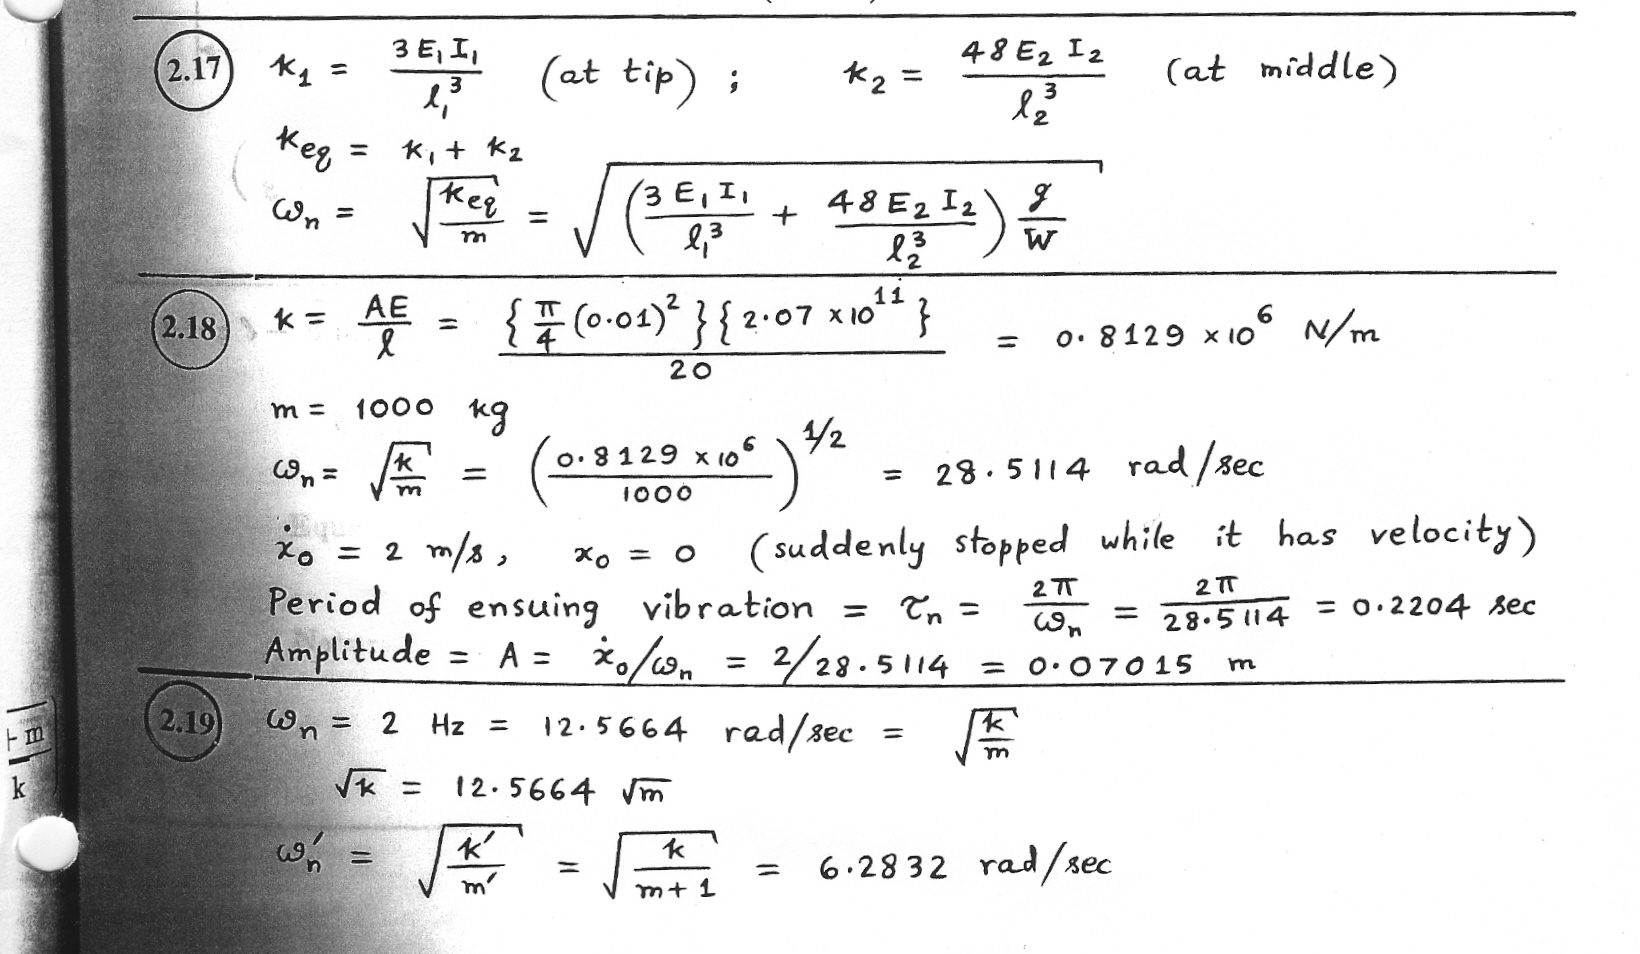 2.17 k₁ = 3 E₁ I₁ / l₁³ (at tip) ; k₂ = 48 E₂ I₂ / l₂³ (at middle)
k_eq = k₁ + k₂
ωₙ = √(k_eq / m) = √((3 E₁ I₁ / l₁³ + 48 E₂ I₂ / l₂³) g / W)
2.18 k = AE / l = {π/4 (0.01)²}{2.07 × 10¹¹} / 20 = 0.8129 × 10⁶ N/m
m = 1000 kg
ωₙ = √(k / m) = (0.8129 × 10⁶ / 1000)^1/2 = 28.5114 rad/sec
ẋ₀ = 2 m/s, x₀ = 0 (suddenly stopped while it has velocity)
Period of ensuing vibration = τₙ = 2π / ωₙ = 2π / 28.5114 = 0.2204 sec
Amplitude = A = ẋ₀/ωₙ = 2/28.5114 = 0.07015 m
2.19 ωₙ = 2 Hz = 12.5664 rad/sec = √(k / m)
√k = 12.5664 √m
ωₙ′ = √(k′ / m′) = √(k / (m + 1)) = 6.2832 rad/sec
m
k